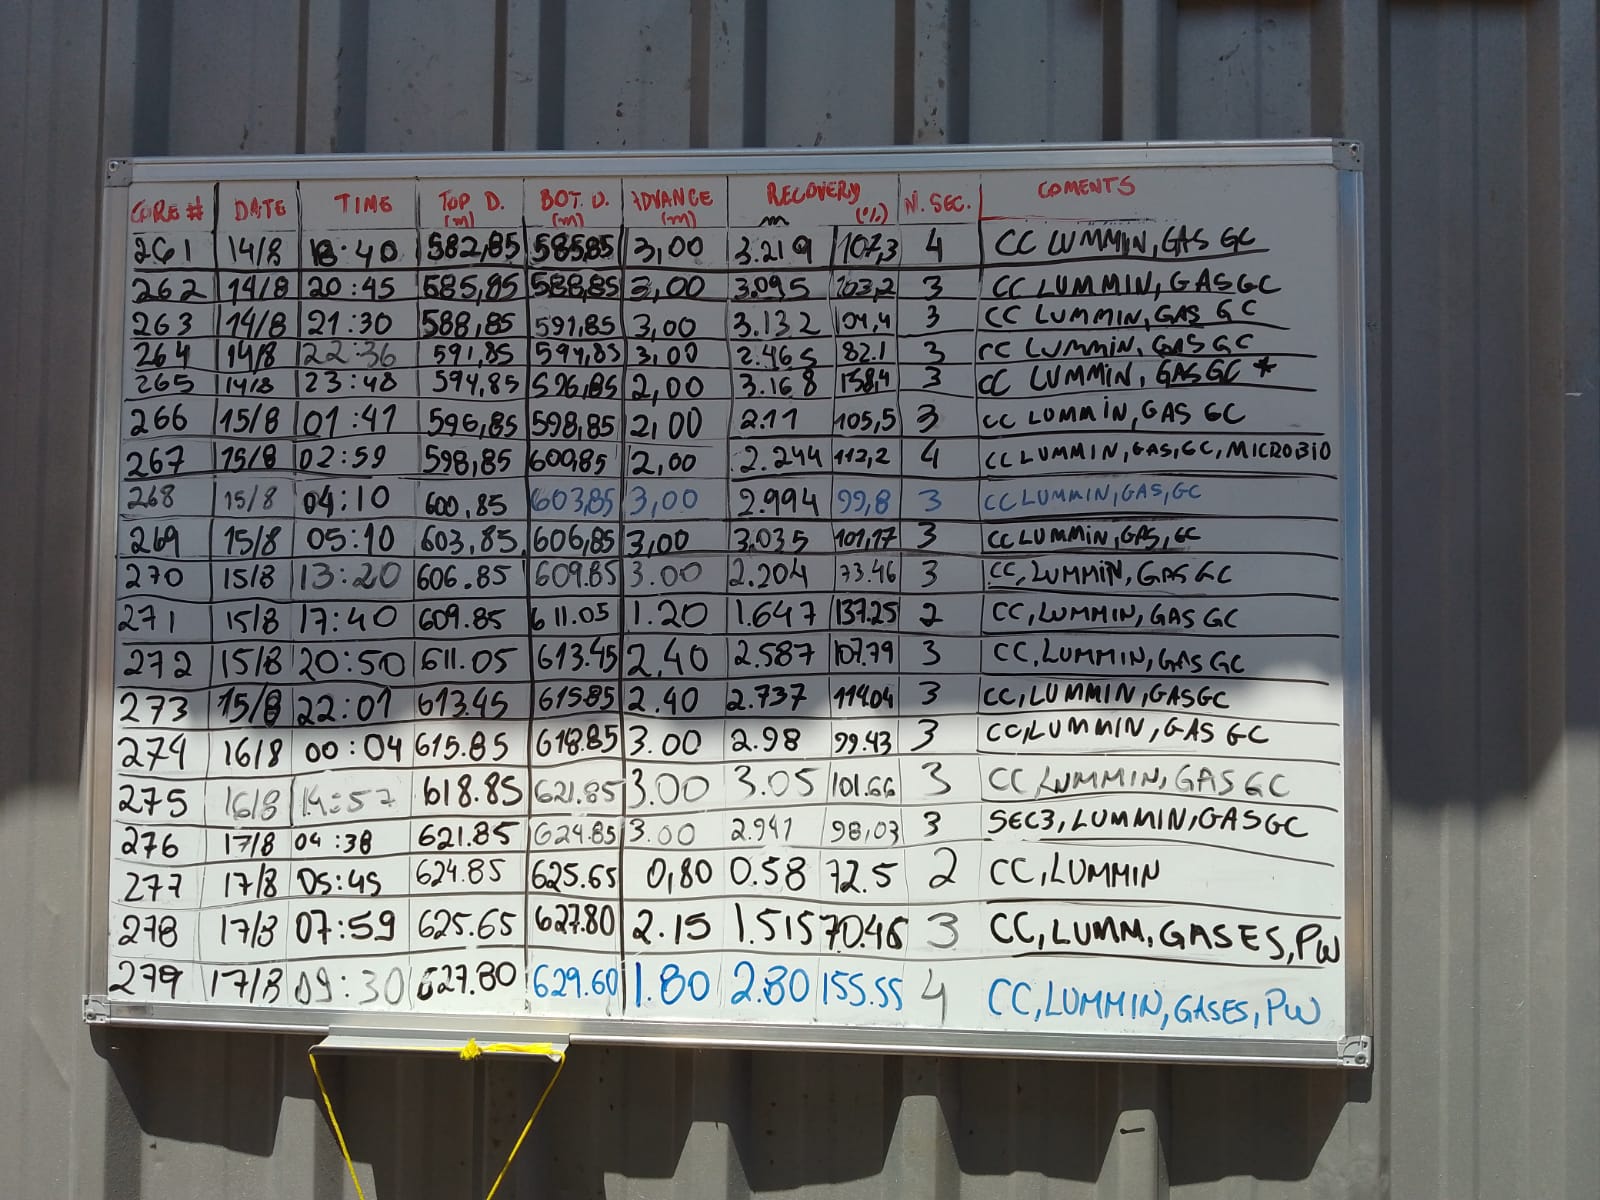 CORE # DATE TIME TOP D. (m) BOT. D. (m) ADVANCE (m) RECOVERY m (%) N. SEC. COMENTS
261 14/8 18:40 582,85 585,85 3,00 3.219 107,3 4 CC LUMMIN, GAS GC
262 14/8 20:45 585,85 588,85 3,00 3.095 103,2 3 CC LUMMIN, GAS GC
263 14/8 21:30 588,85 591,85 3,00 3.132 104,4 3 CC LUMMIN, GAS GC
264 14/8 22:36 591,85 594,85 3,00 2.465 82.1 3 CC LUMMIN, GAS GC
265 14/8 23:48 594,85 596,85 2,00 3.168 158,4 3 CC LUMMIN, GAS GC *
266 15/8 01:41 596,85 598,85 2,00 2.11 105,5 3 CC LUMMIN, GAS GC
267 15/8 02:59 598,85 600,85 2,00 2.244 112,2 4 CC LUMMIN, GAS, GC, MICROBIO
268 15/8 04:10 600,85 603,85 3,00 2.994 99,8 3 CC LUMMIN, GAS, GC
269 15/8 05:10 603,85 606,85 3,00 3.035 101,17 3 CC LUMMIN, GAS, GC
270 15/8 13:20 606.85 609.85 3.00 2.204 73.46 3 CC, LUMMIN, GAS GC
271 15/8 17:40 609.85 611.05 1.20 1.647 137.25 2 CC, LUMMIN, GAS GC
272 15/8 20:50 611.05 613.45 2.40 2.587 107.79 3 CC, LUMMIN, GAS GC
273 15/8 22:01 613.45 615.85 2.40 2.737 114.04 3 CC, LUMMIN, GAS GC
274 16/8 00:04 615.85 618.85 3.00 2.98 99.43 3 CC, LUMMIN, GAS GC
275 16/8 14:57 618.85 621.85 3.00 3.05 101.66 3 CC, LUMMIN, GAS GC
276 17/8 04:38 621.85 624.85 3.00 2.941 98,03 3 SEC3, LUMMIN, GAS GC
277 17/8 05:45 624.85 625.65 0,80 0.58 72.5 2 CC, LUMMIN
278 17/8 07:59 625.65 627.80 2.15 1.515 70.46 3 CC, LUMM, GASES, PW
279 17/8 09:30 627.80 629.60 1.80 2.80 155.55 4 CC, LUMMIN, GASES, PW